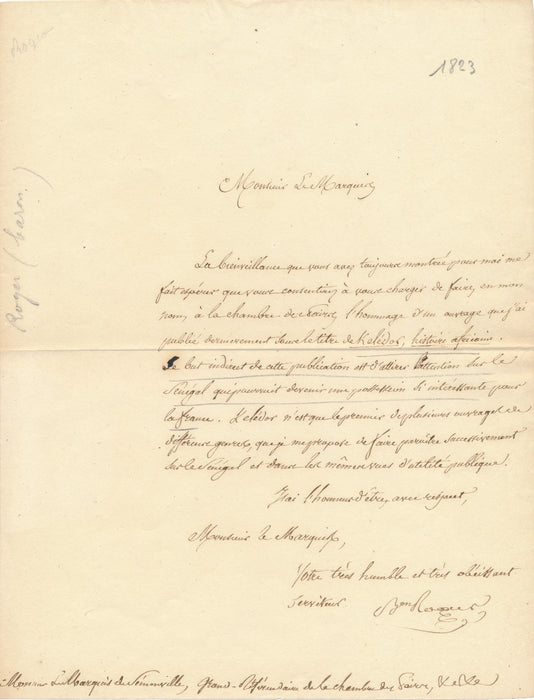 Roger
1823
Roger (baron)
Monsieur Le Marquis
La bienveillance que vous avez toujours montrée pour moi me
fait espérer que vous consentirez à vous charger de faire, en mon
nom, à la chambre des Pairs, l'hommage d'un ouvrage que j'ai
publié dernierement sous le titre de Kelédor, histoire africaine.
Le but indirect de cette publication est d'attirer l'attention sur le
Sénégal qui pourrait devenir une possession si intéressante pour
la france. Kelédor n'est que le premier de plusieurs ouvrages de
différens genres, que je me propose de faire paraitre successivement
sur le Sénégal et dans les mêmes vues d'utilité publique.
J'ai l'honneur d'être, avec respect,
Monsieur le Marquis,
Votre très humble et très obéissant
serviteur
Bon Roger
Monsieur Le Marquis de Sémonville, Grand-Référendaire de la chambre des Pairs, &a &a